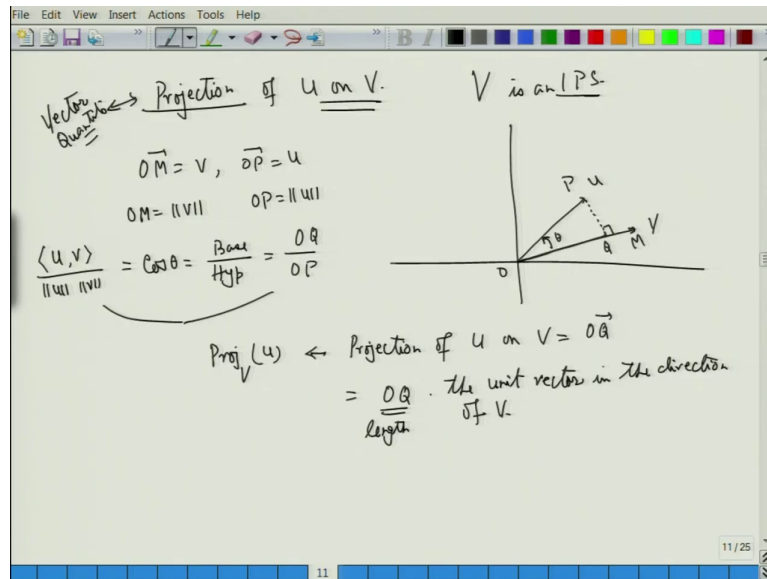 File Edit View Insert Actions Tools Help
Vector Quantities ↔ Projection of u on v.
V is an IPS.
OM⃗ = v, OP⃗ = u
OM = ||v|| OP = ||u||
⟨u,v⟩ / ||u|| ||v|| = Cosθ = Base / Hyp = OQ / OP
P u
θ
Q M V
O
Proj_V (u) ← Projection of u on v = OQ⃗
= OQ . the unit vector in the direction
length of v.
11/25
11